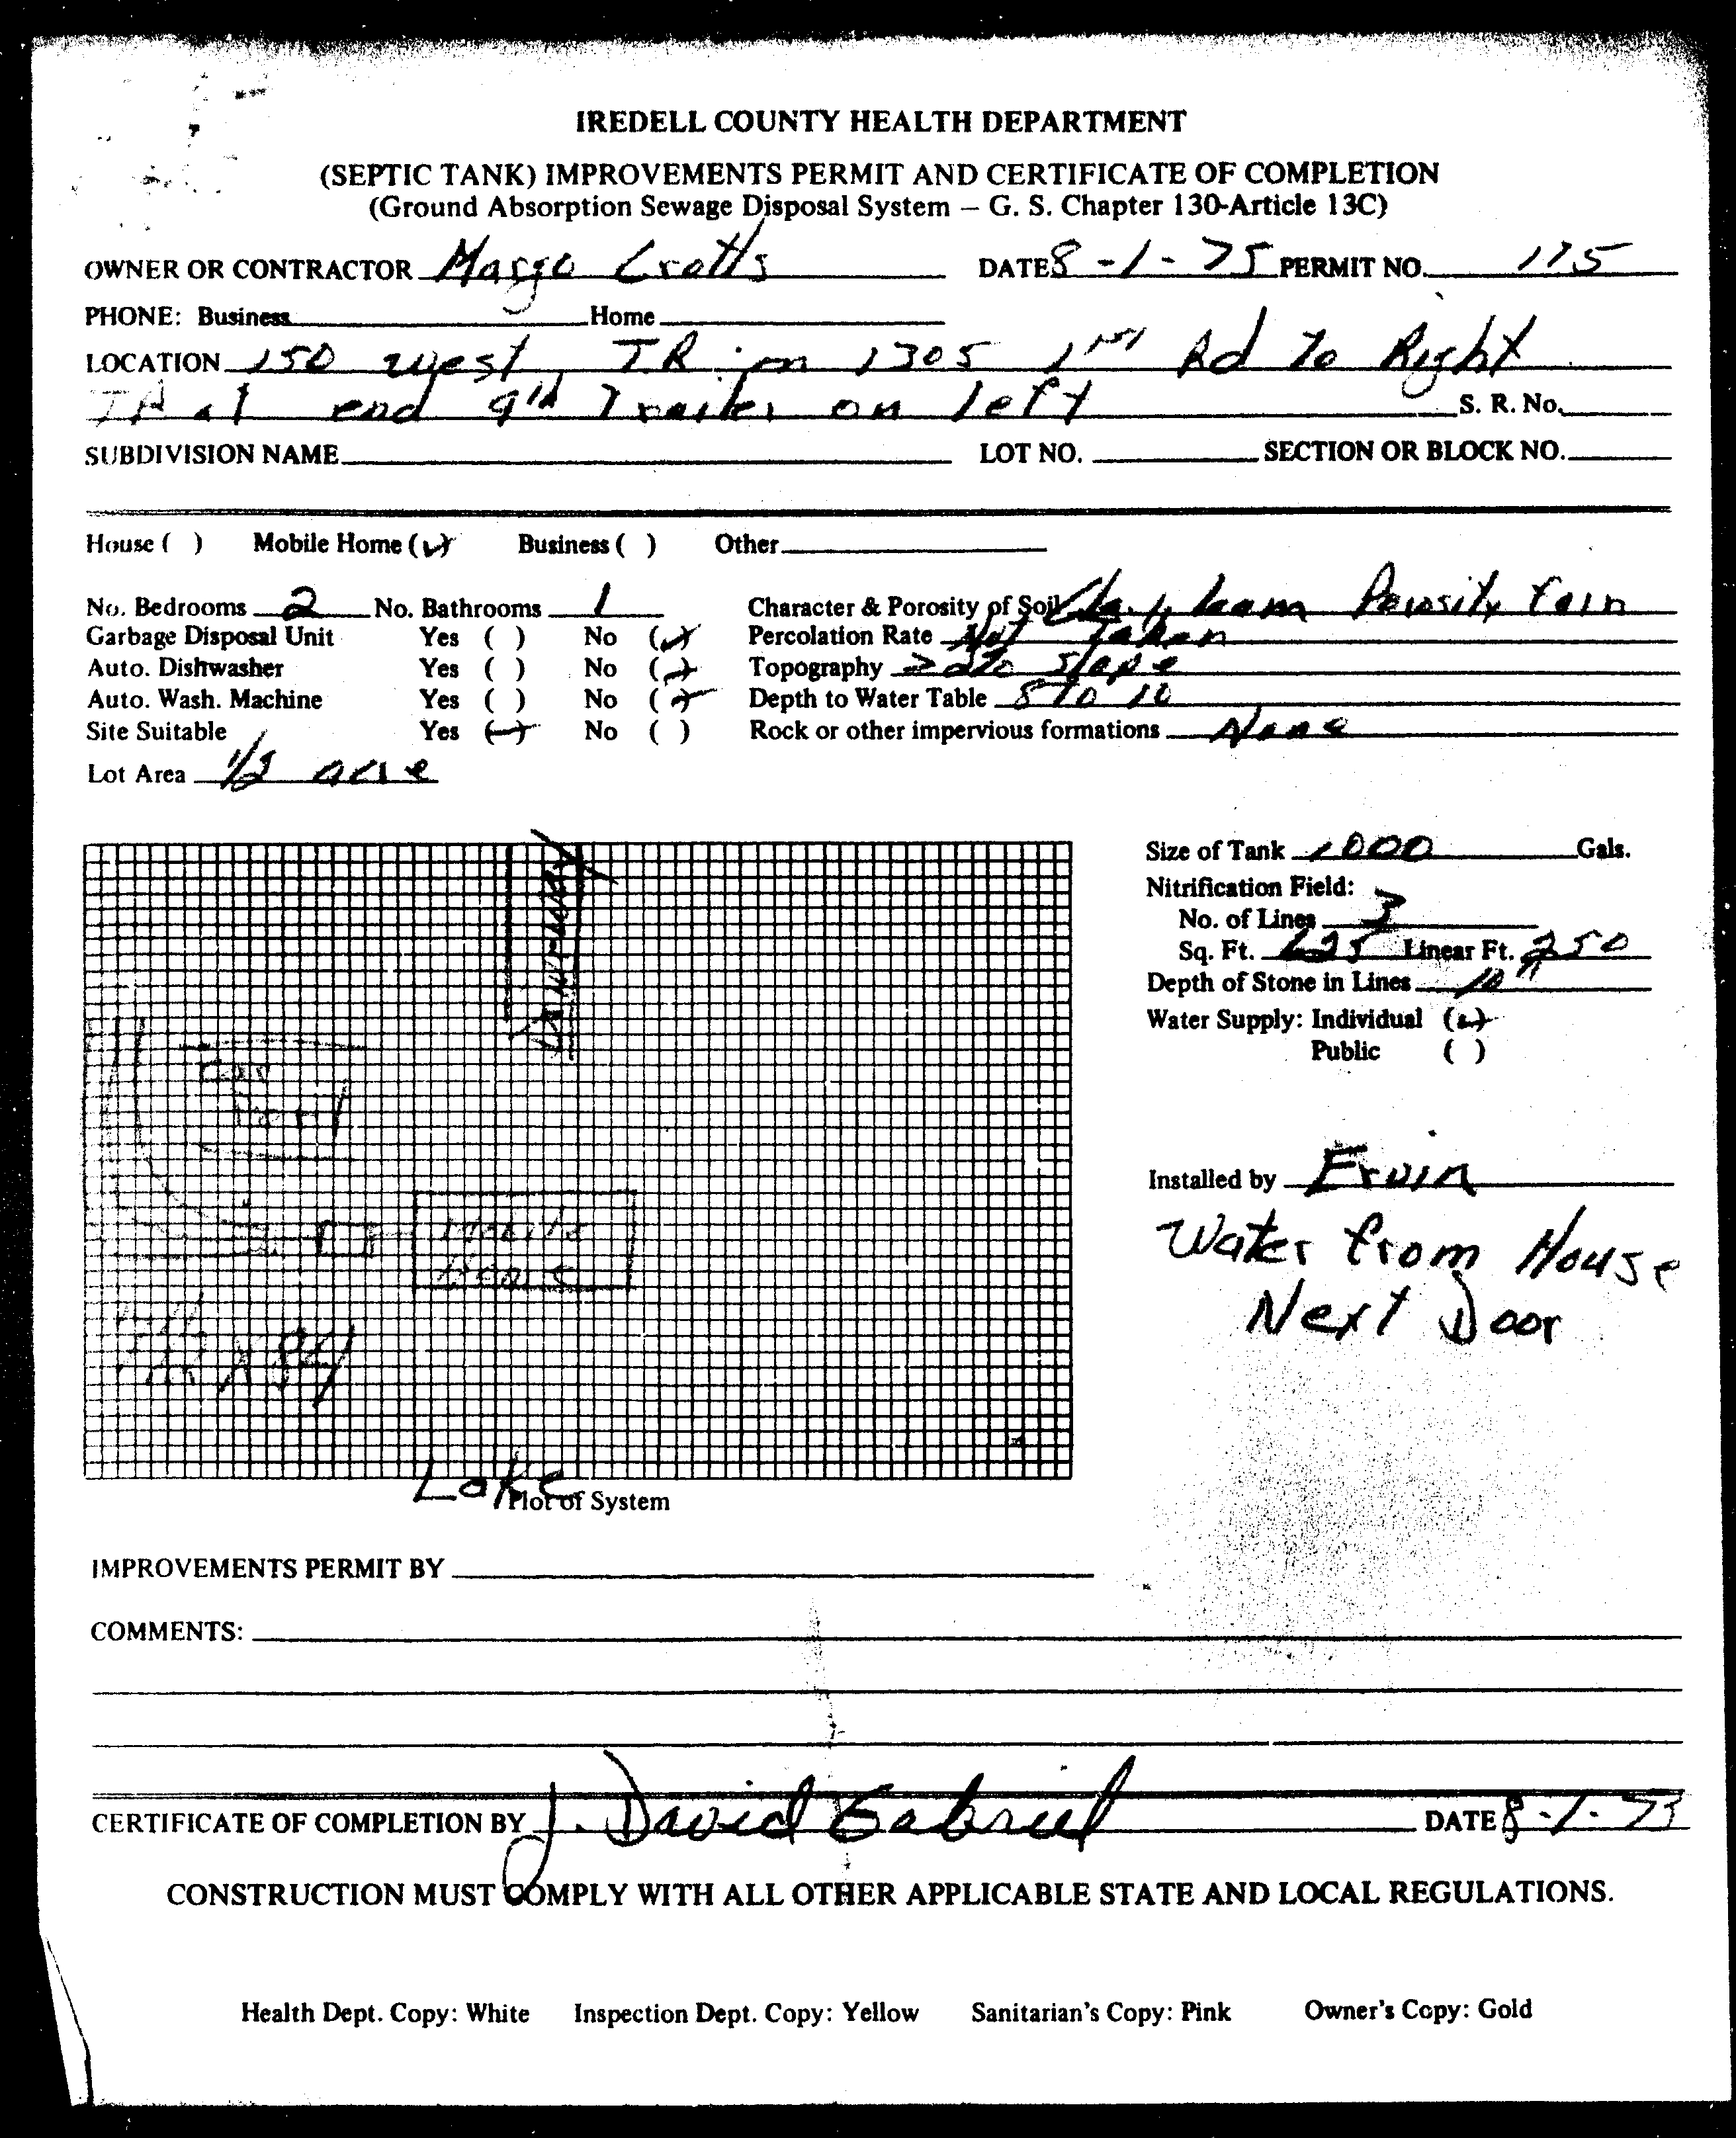 IREDELL COUNTY HEALTH DEPARTMENT
(SEPTIC TANK) IMPROVEMENTS PERMIT AND CERTIFICATE OF COMPLETION
(Ground Absorption Sewage Disposal System – G. S. Chapter 130-Article 13C)
OWNER OR CONTRACTOR Margo Crotts DATE 8-1-75 PERMIT NO. 175
PHONE: Business Home
LOCATION 150 west TR on 1305 1st Rd To Right
TR at end 9th Trailer on left S. R. No.
SUBDIVISION NAME LOT NO. SECTION OR BLOCK NO.
House ( ) Mobile Home (✓) Business ( ) Other
No. Bedrooms 2 No. Bathrooms 1 Character & Porosity of Soil Clay loam Porosity Fair
Garbage Disposal Unit Yes ( ) No (✓) Percolation Rate Not Taken
Auto. Dishwasher Yes ( ) No (✓) Topography slope
Auto. Wash. Machine Yes ( ) No (✓) Depth to Water Table 8 To 10
Site Suitable Yes (✓) No ( ) Rock or other impervious formations None
Lot Area 1/2 acre
Size of Tank 1000 Gals.
Nitrification Field:
No. of Lines 3
Sq. Ft. 625 Linear Ft. 250
Depth of Stone in Lines 10"
Water Supply: Individual (✓)
Public ( )
Driveway
Mobile
Home
Installed by Ervin
Water from House
Next Door
Lake
Plot of System
IMPROVEMENTS PERMIT BY
COMMENTS:
CERTIFICATE OF COMPLETION BY J. David Gabriel DATE 8-1-75
CONSTRUCTION MUST COMPLY WITH ALL OTHER APPLICABLE STATE AND LOCAL REGULATIONS.
Health Dept. Copy: White Inspection Dept. Copy: Yellow Sanitarian's Copy: Pink Owner's Copy: Gold